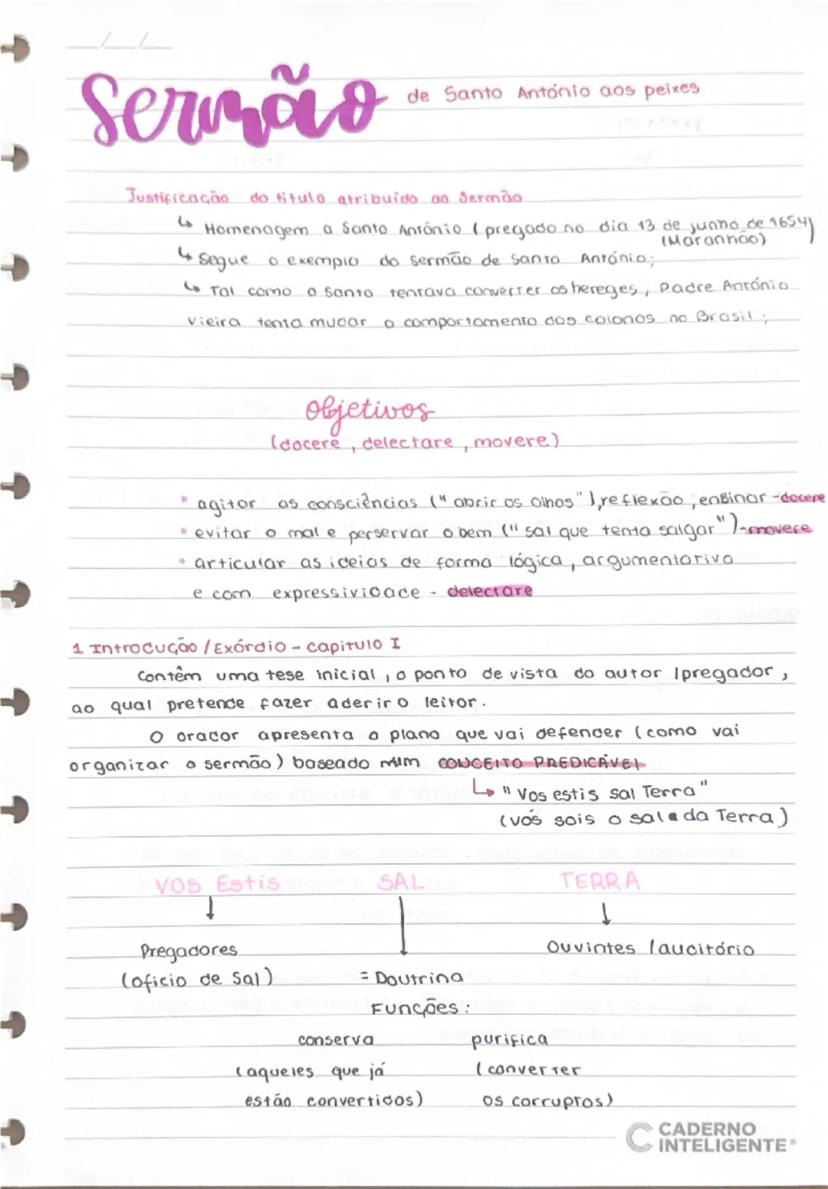 __/__/__
Sermão de Santo António aos peixes
Justificação do título atribuído ao Sermão
↳ Homenagem a Santo António (pregado no dia 13 de junho de 1654)
(Maranhão)
↳ Segue o exemplo do sermão de Santo António;
↳ Tal como o Santo tentava converter os hereges, Padre António
Vieira tenta mudar o comportamento dos colonos no Brasil;
Objetivos
(docere, delectare, movere)
• agitar as consciências ("abrir os olhos"), reflexão, ensinar - docere
• evitar o mal e perservar o bem ("sal que tenta salgar") - movere
• articular as ideias de forma lógica, argumentativa
e com expressividade - delectare
1 Introdução/Exórdio - capitulo I
Contêm uma tese inicial, o ponto de vista do autor/pregador,
ao qual pretende fazer aderir o leitor.
O orador apresenta o plano que vai defender (como vai
organizar o sermão) baseado num CONCEITO PREDICÁVEL
↳ "Vos estis sal Terra"
(vós sois o sal da Terra)
VOS Estis SAL TERRA
Pregadores Ouvintes/auditório
(oficio de Sal) = Doutrina
Funções:
conserva purifica
(aqueles que já (converter
estão convertidos) os corruptos)
CADERNO
INTELIGENTE®